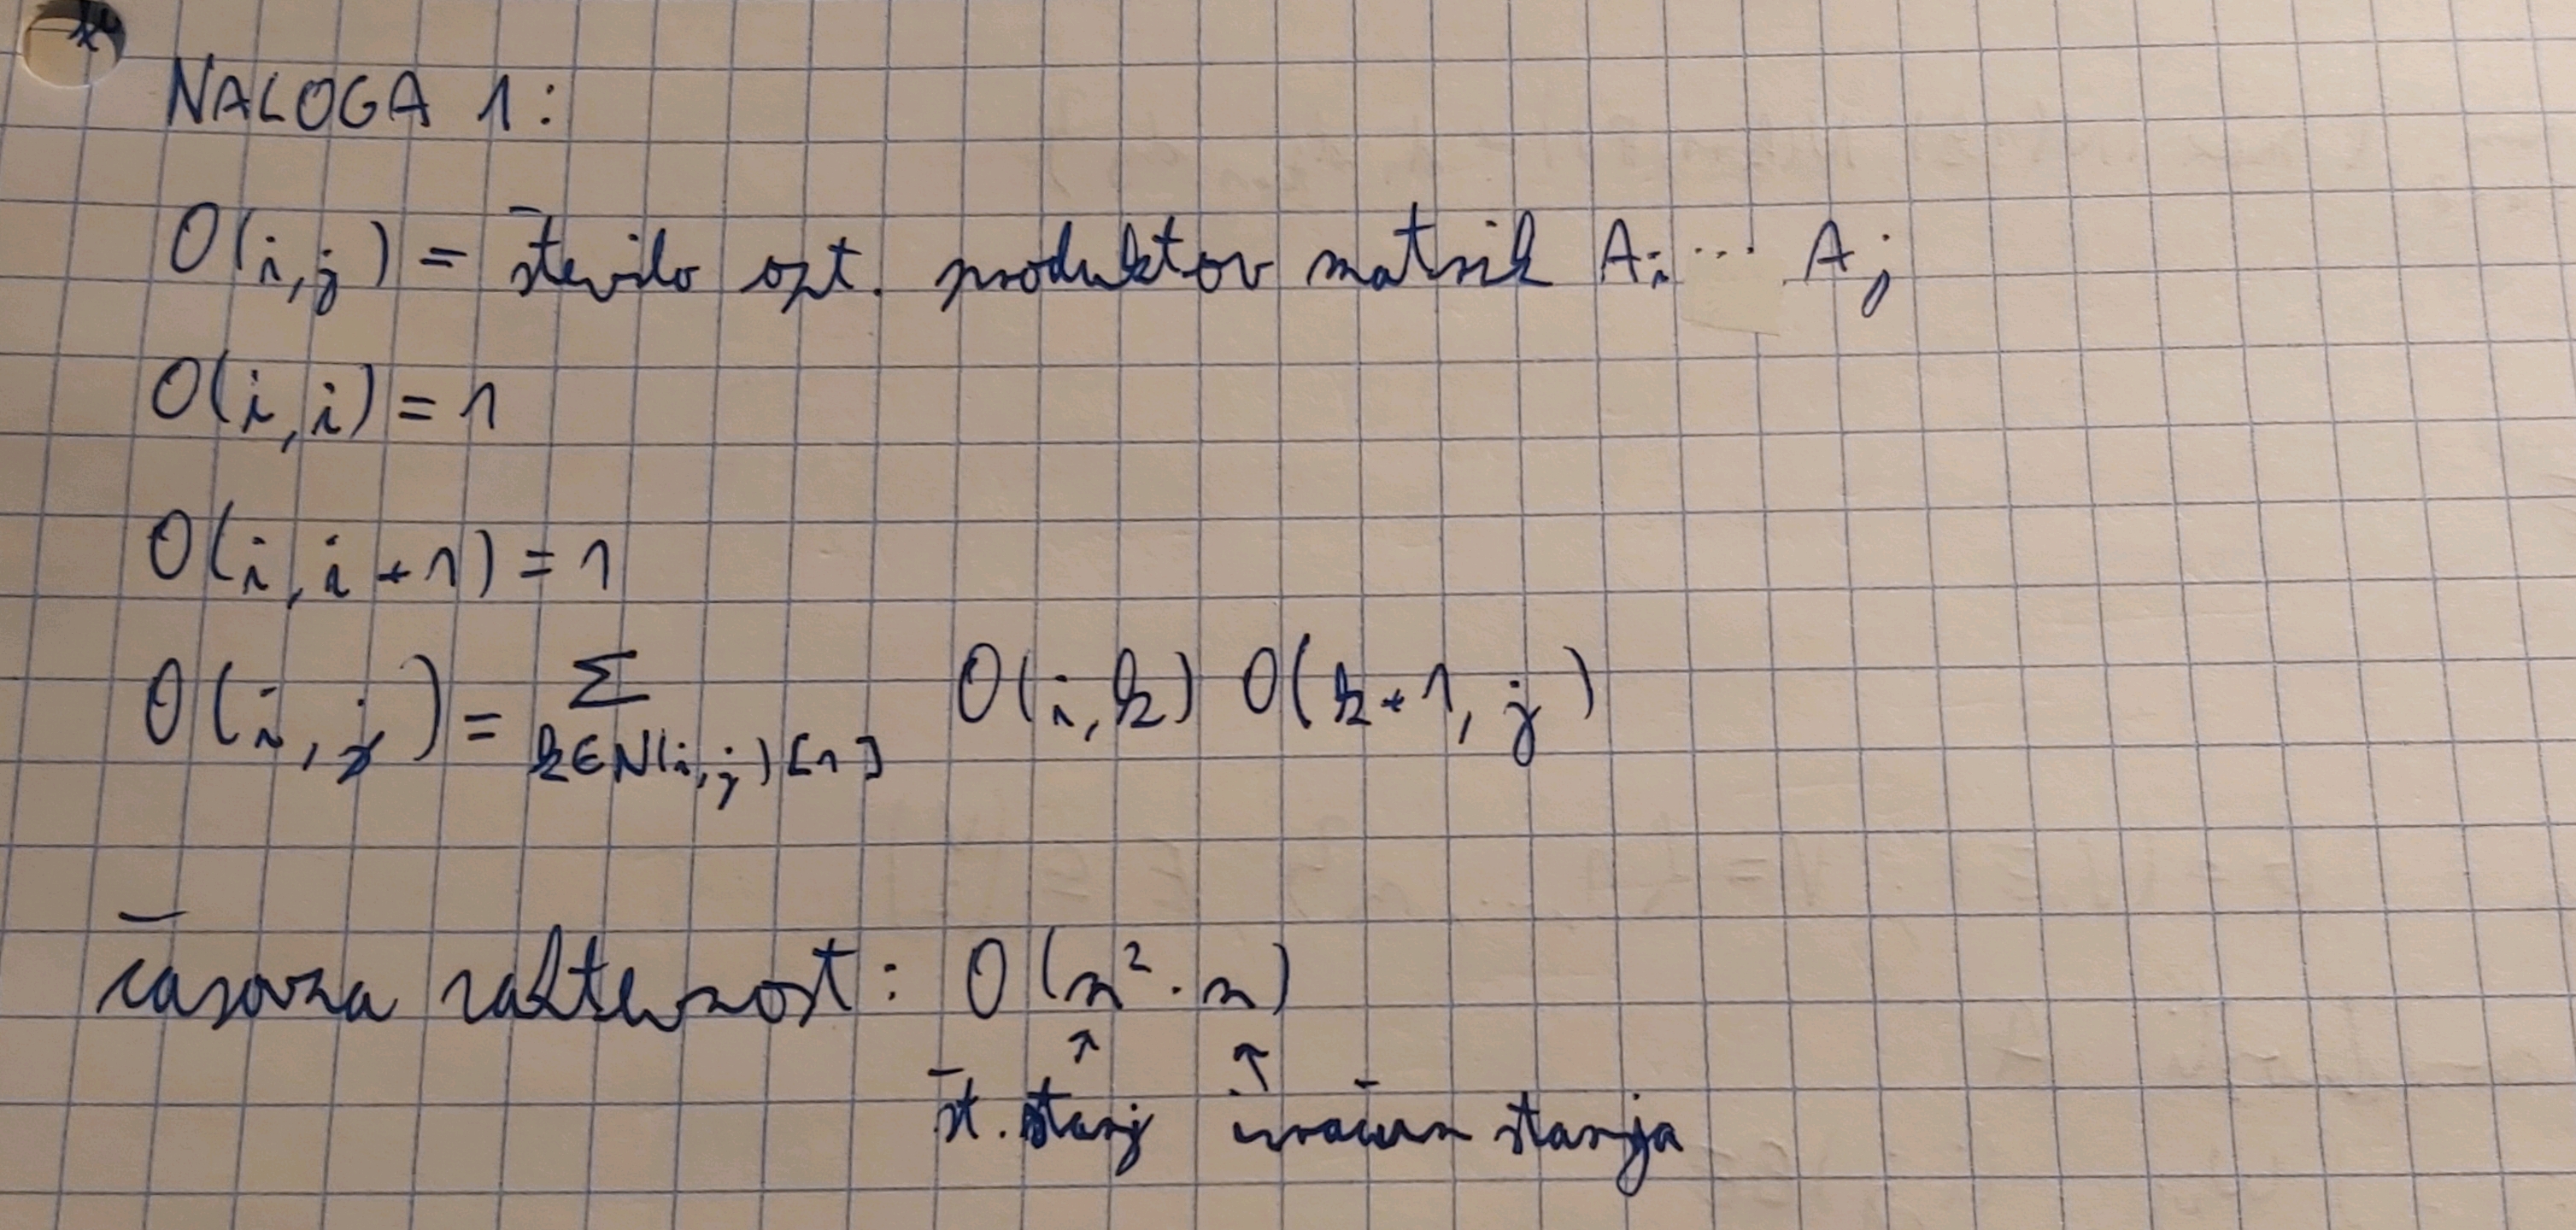 NALOGA 1:
O(i,j) = število opt. produktov matrik Ai ... Aj
O(i,i) = 1
O(i,i+1) = 1
O(i,j) = Σ k∈N(i,j)[1] O(i,k) O(k+1,j)
časovna zahtevnost: O(n²·n)
↑ ↑
št. stanj izračun stanja